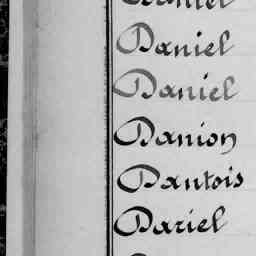 Daniel
Daniel
Daniel
Danion
Dantois
Dariel